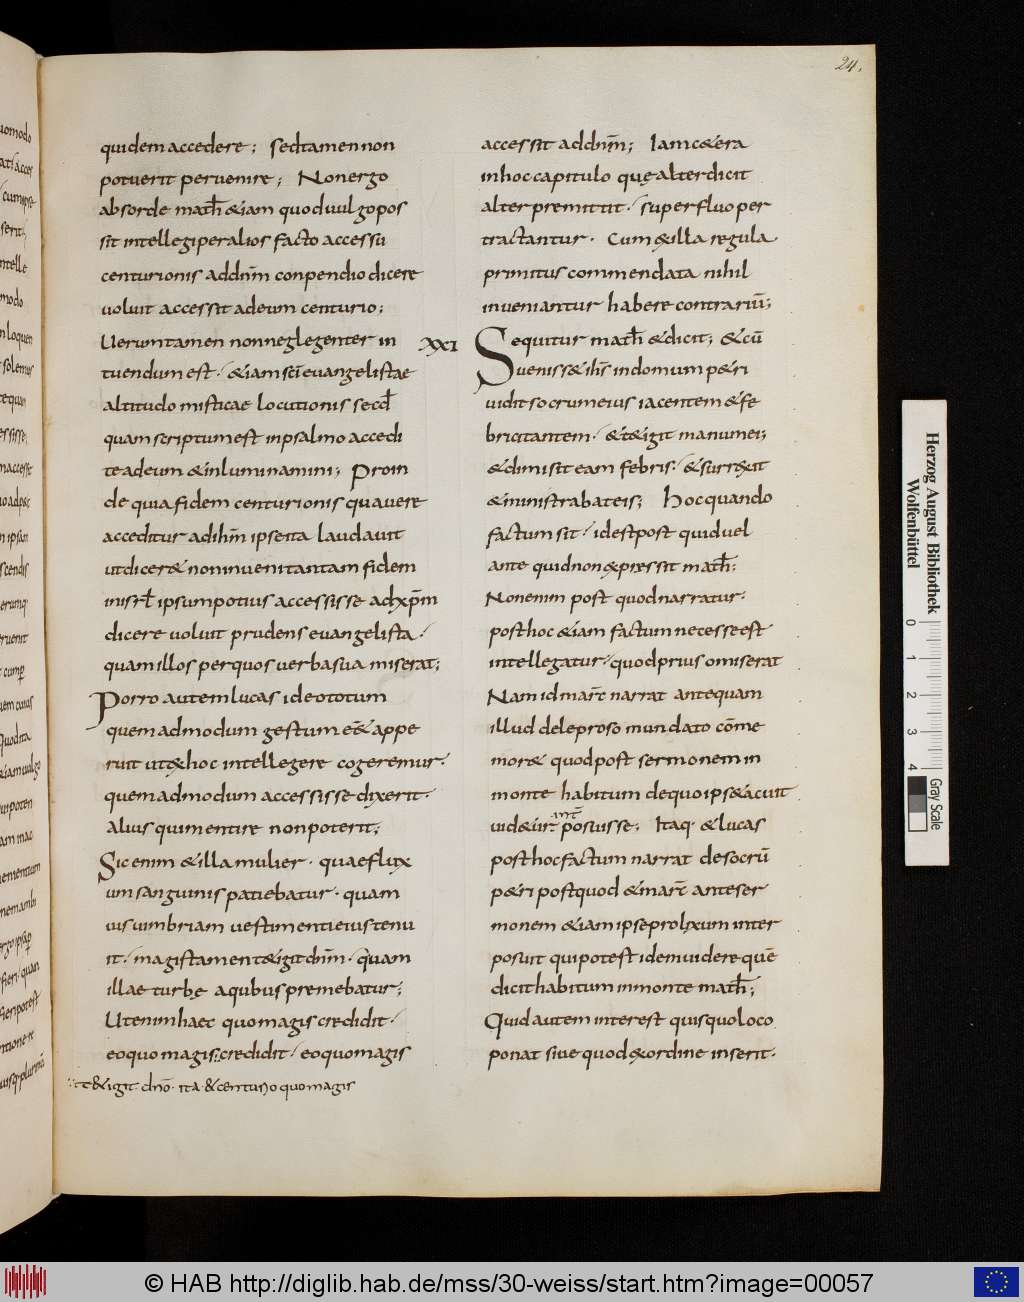 24.
quidem accedere; sed tamen non
potuerit pervenire; Non ergo
absorde math̄ &iam quod vulgo pos
sit intellegi per alios facto accessu
centurionis ad dn̄m conpendio dicere
voluit accessit ad eum centurio;
Uerumtamen non neglegenter in
tuendum est. &iam sc̄i evangelistae
altitudo misticae locutionis secd̄
quam scriptum est in psalmo accedi
te ad eum & inluminamini; Proin
de quia fidem centurionis qua vere
acceditur ad ih̄m ipse ita laudavit
ut dicer& non inveni tantam fidem
in isrl̄ ipsum potius accessisse ad xp̄m
dicere voluit prudens evangelista.
quam illos per quos verba sua miserat;
Porro autem lucas ideo totum
quemadmodum gestum ē& appe
ruit ut &hoc intellegere cogeremur.
quemadmodum accessisse dixerit.
alius qui mentire non poterit;
Sic enim & illa mulier. quae flux
um sanguinis patiebatur. quam
uis vimbriam vestimenti eius tenu
it. magis tamen t&igit dn̄m. quam
illae turbę a quibus premebatur;
Ut enim haec quo magis credidit.
eo quo magis:credidit. eo quo magis
t&igit dnō. ita & centurio quo magis
accessit ad dn̄m; Iam c&era
in hoc capitulo quę alter dicit
alter premittit. superfluo per
tractantur. Cum & illa regula
primitus commendata nihil
inveniantur habere contrariū;
XXI
Sequitur math̄ & dicit; & cū
venisset ih̄s in domum p&ri
vidit socrum eius iacentem & fe
bricitantem. & t&igit manum ei;
& dimisit eam febris. & surrexit
& ministrabat eis; Hoc quando
factum sit. id est post quid vel
ante quid non expressit math̄.
Non enim post quod narratur.
post hoc &iam factum necesse est
intellegatur. quod prius omiserat
Nam id marc̄ narrat antequam
illud de leproso mundato cōme
mor& quod post sermonem in
monte habitum de quo ipse tacuit
vid&ur int̄ posuisse; Itaq. & lucas
post hoc factum narrat de socrū
p&ri post quod & marc̄ ante ser
monem &iam ipse prolixum inter
posuit qui potest idem videre quē
dicit habitum in monte math̄;
Quid autem interest quis quo loco
ponat sive quod ex ordine inserit.
Herzog August Bibliothek
Wolfenbüttel
0 1 2 3 4
Gray Scale
© HAB http://diglib.hab.de/mss/30-weiss/start.htm?image=00057